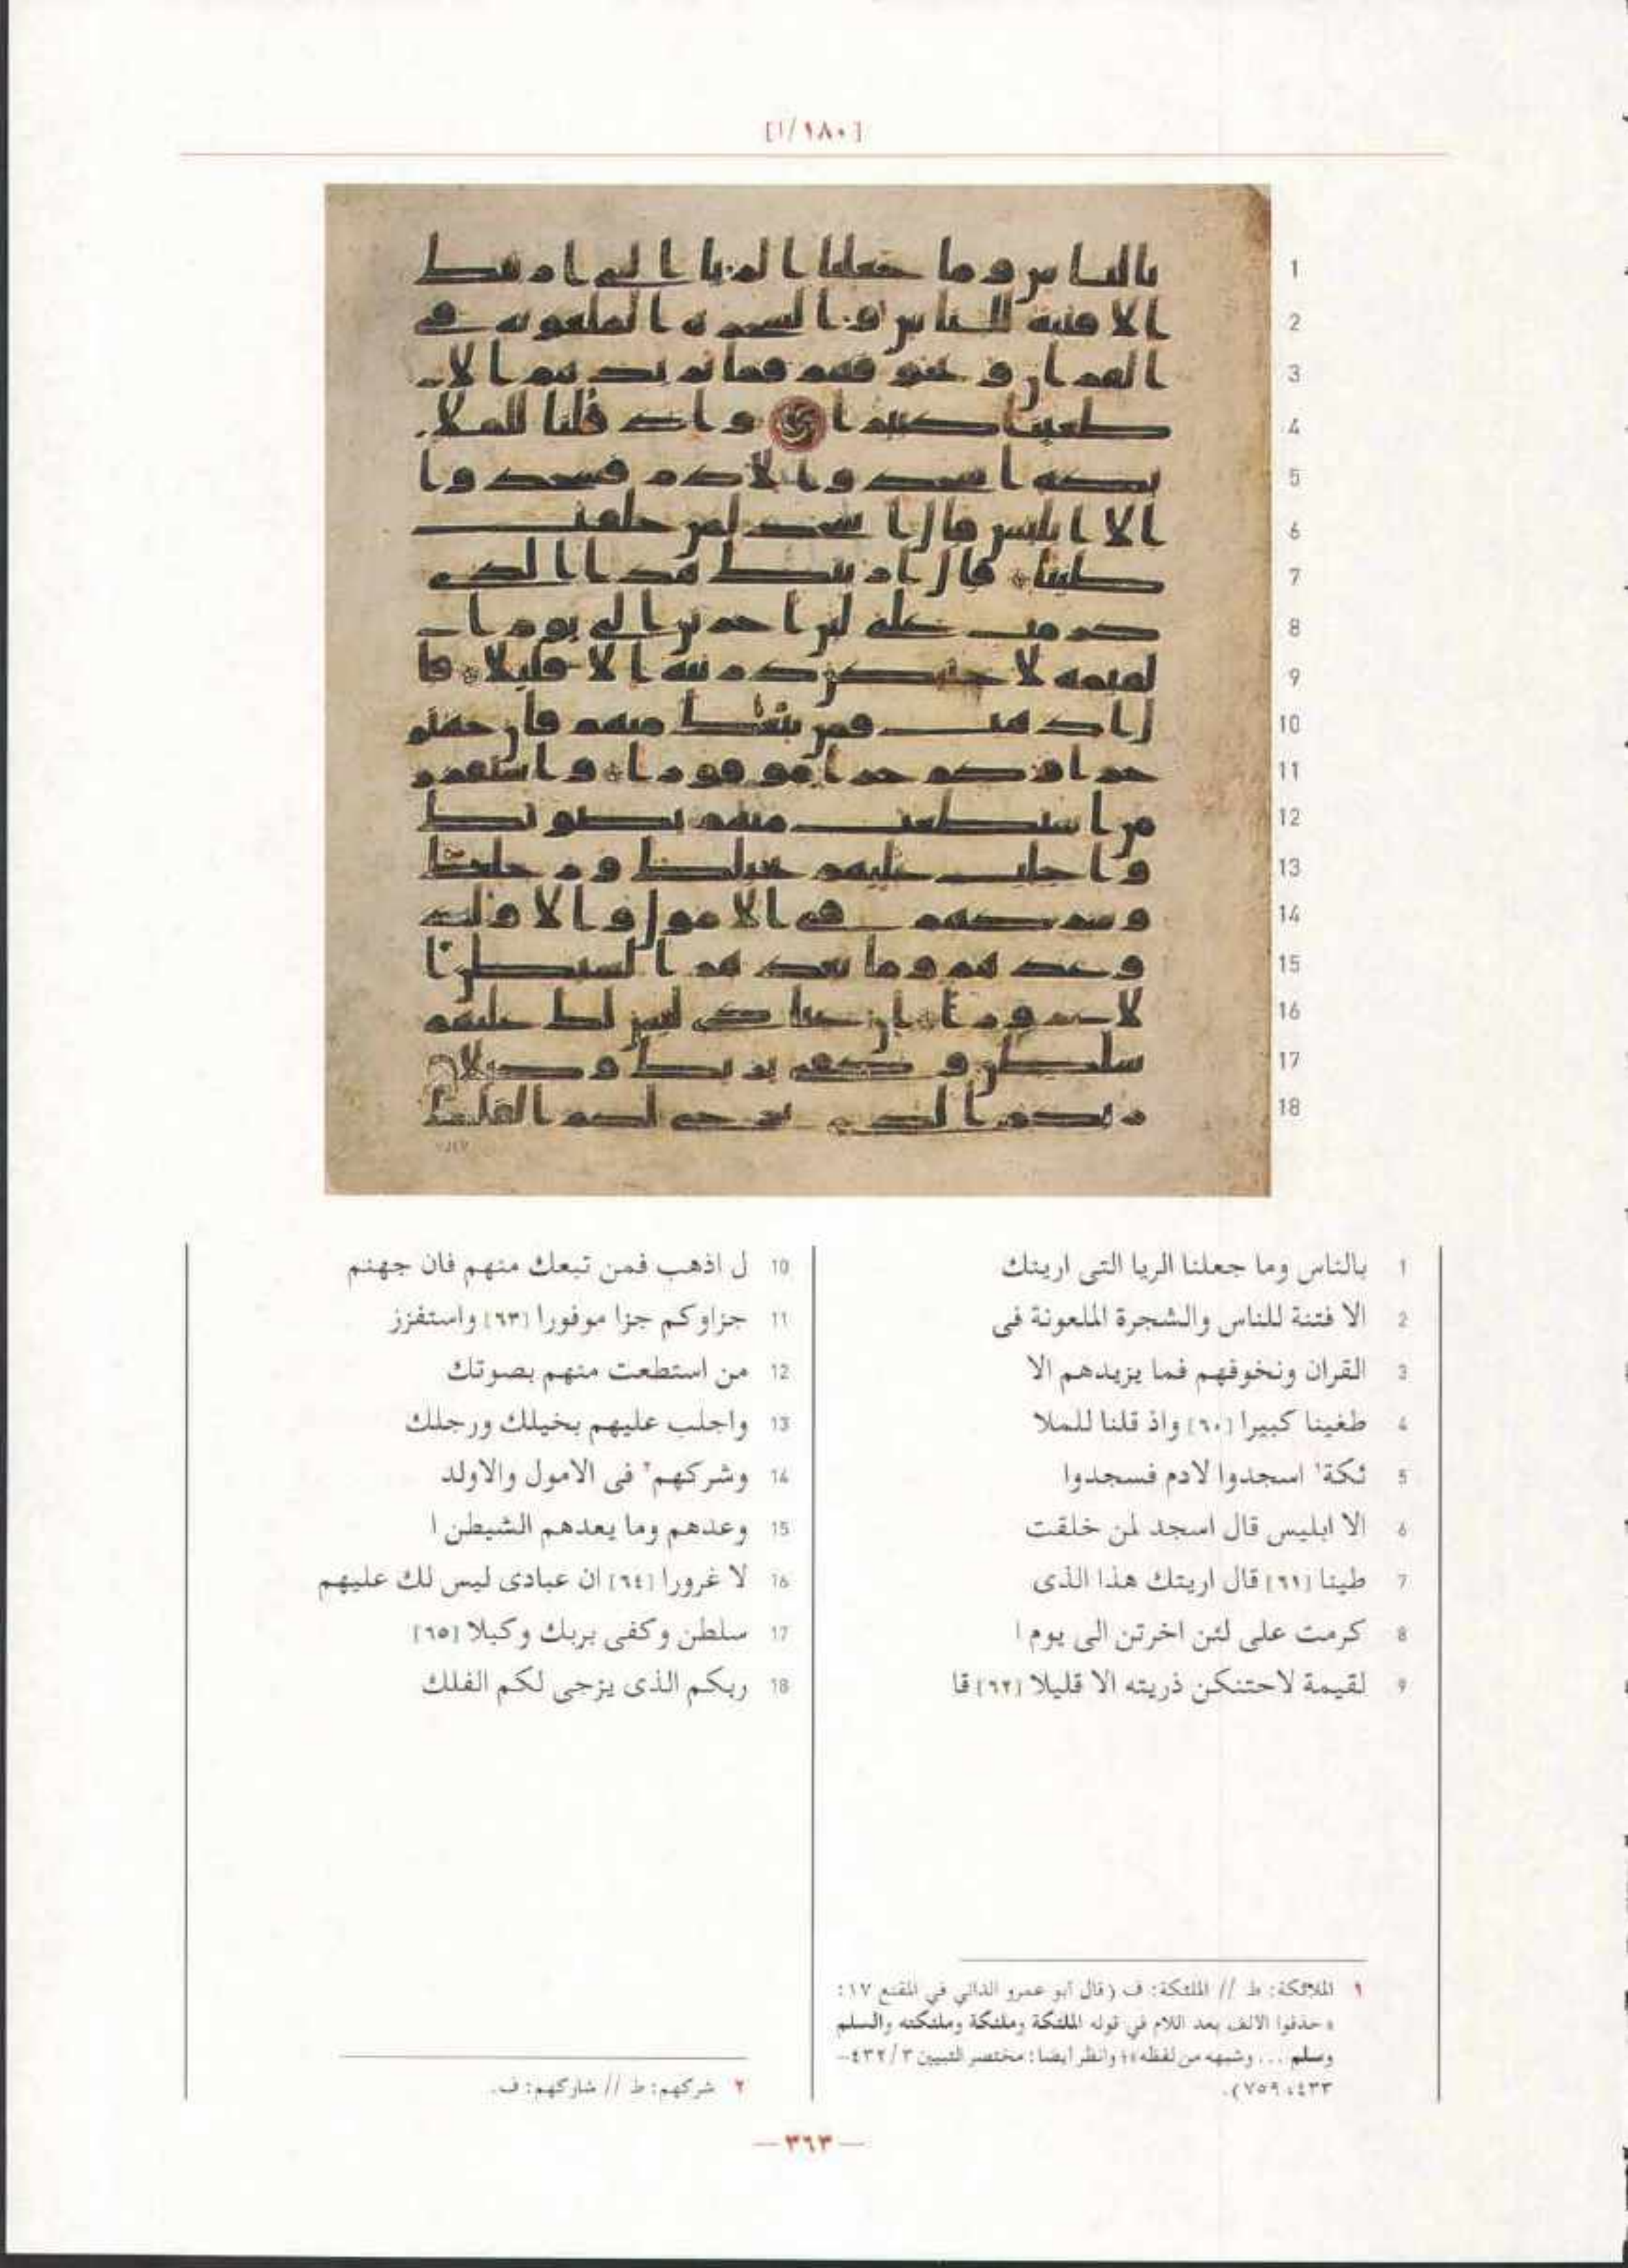 [١٨٠/ا]
1
2
3
4
5
6
7
8
9
10
11
12
13
14
15
16
17
18
1 بالناس وما جعلنا الريا التى ارينك
2 الا فتنة للناس والشجرة الملعونة فى
3 القران ونخوفهم فما يزيدهم الا
4 طغينا كبيرا [٦٠] واذ قلنا للملا
5 ئكة١ اسجدوا لادم فسجدوا
6 الا ابليس قال اسجد لمن خلقت
7 طينا [٦١] قال اريتك هذا الذى
8 كرمت على لئن اخرتن الى يوم ا
9 لقيمة لاحتنكن ذريته الا قليلا [٦٢] قا
10 ل اذهب فمن تبعك منهم فان جهنم
11 جزاوكم جزا موفورا [٦٣] واستفزز
12 من استطعت منهم بصوتك
13 واجلب عليهم بخيلك ورجلك
14 وشركهم٢ فى الامول والاولد
15 وعدهم وما يعدهم الشيطن ا
16 لا غرورا [٦٤] ان عبادى ليس لك عليهم
17 سلطن وكفى بربك وكيلا [٦٥]
18 ربكم الذى يزجى لكم الفلك
١ الملائكة: ط // الملئكة: ف (قال أبو عمرو الداني في المقنع ١٧:
«حذفوا الالف بعد اللام في قوله الملئكة وملئكة وملئكته والسلم
وسلم ... وشبهه من لفظه»؛ وانظر أيضا: مختصر التبيين ٤٣٢/٣-
٤٣٣، ٧٥٩).
٢ شركهم: ط // شاركهم: ف.
— ٣٦٣ —